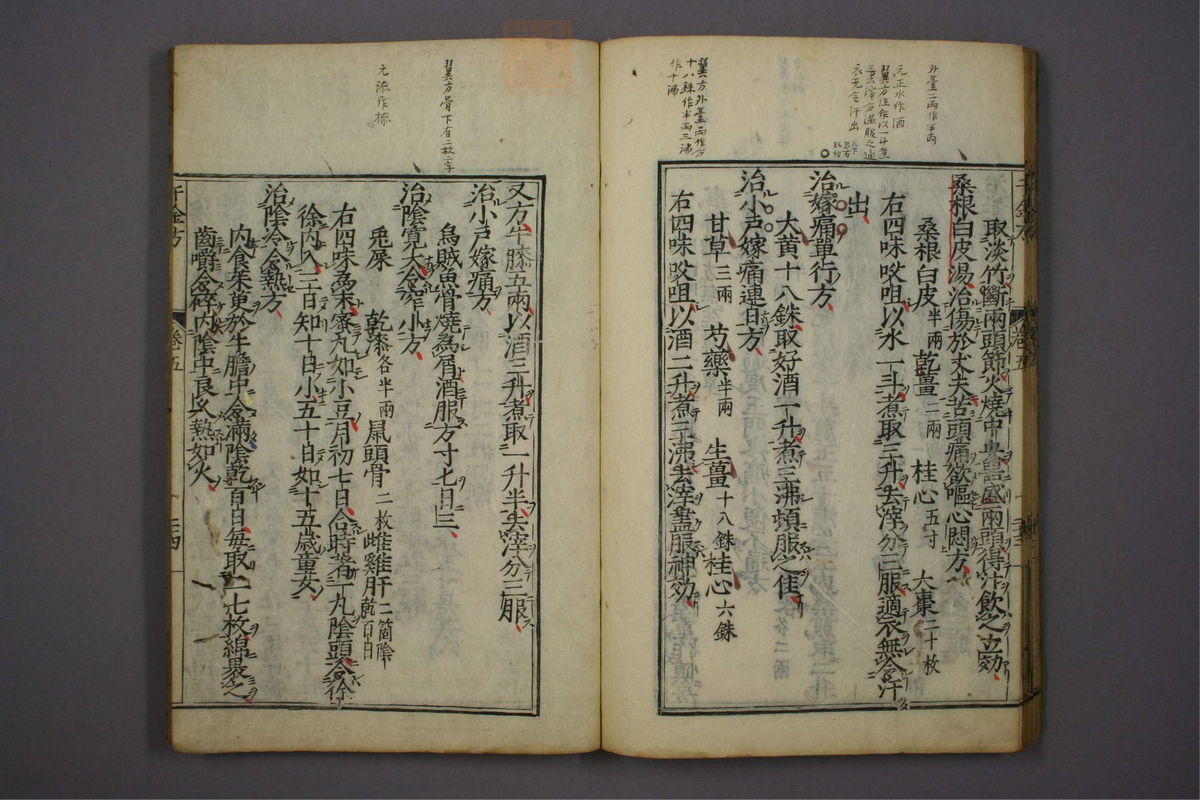 外臺二兩作半兩
元正水作酒
翼方注作以一斗煮
三升去滓分溫服之適
衣无令汗出
翼方外臺兩作分
十八銖作半兩三沸
作十沸
千金方
卷五
三十三
取淡竹斷兩頭節火燒中央器盛兩頭得汁飮之立効
桑根白皮湯治傷於丈夫苦頭痛欲嘔心悶方
桑根白皮半兩 乾薑二兩 桂心五寸 大棗二十枚
右四味㕮咀以水一斗煮取三升去滓分三服適衣無令汗
出
治嫁痛單行方
大黃十八銖取好酒一升煮三沸頓服之佳
治小戶嫁痛連日方
甘草三兩 芍藥半兩 生薑十八銖 桂心六銖
右四味㕮咀以酒二升煮三沸去滓盡服神効
翼方骨下有二枚二字
元漆作
又方牛膝五兩以酒三升煮取一升半去滓分三服
治小戶嫁痛方
烏賊魚骨燒爲屑酒服方寸匕日三
治陰寬大令窄小方
兎屎 乾漆各半兩 鼠頭骨二枚 雌雞肝二箇陰乾百日
右四味爲末蜜丸如小豆月初七日合時著一丸陰頭令徐
徐內入三日知十日小五十日如十五歲童女
治陰冷令熱方
內食茱萸於牛膽中令滿陰乾百日每取二七枚綿裹之
齒嚼令碎內陰中良久熱如火
千金方
卷五
三四